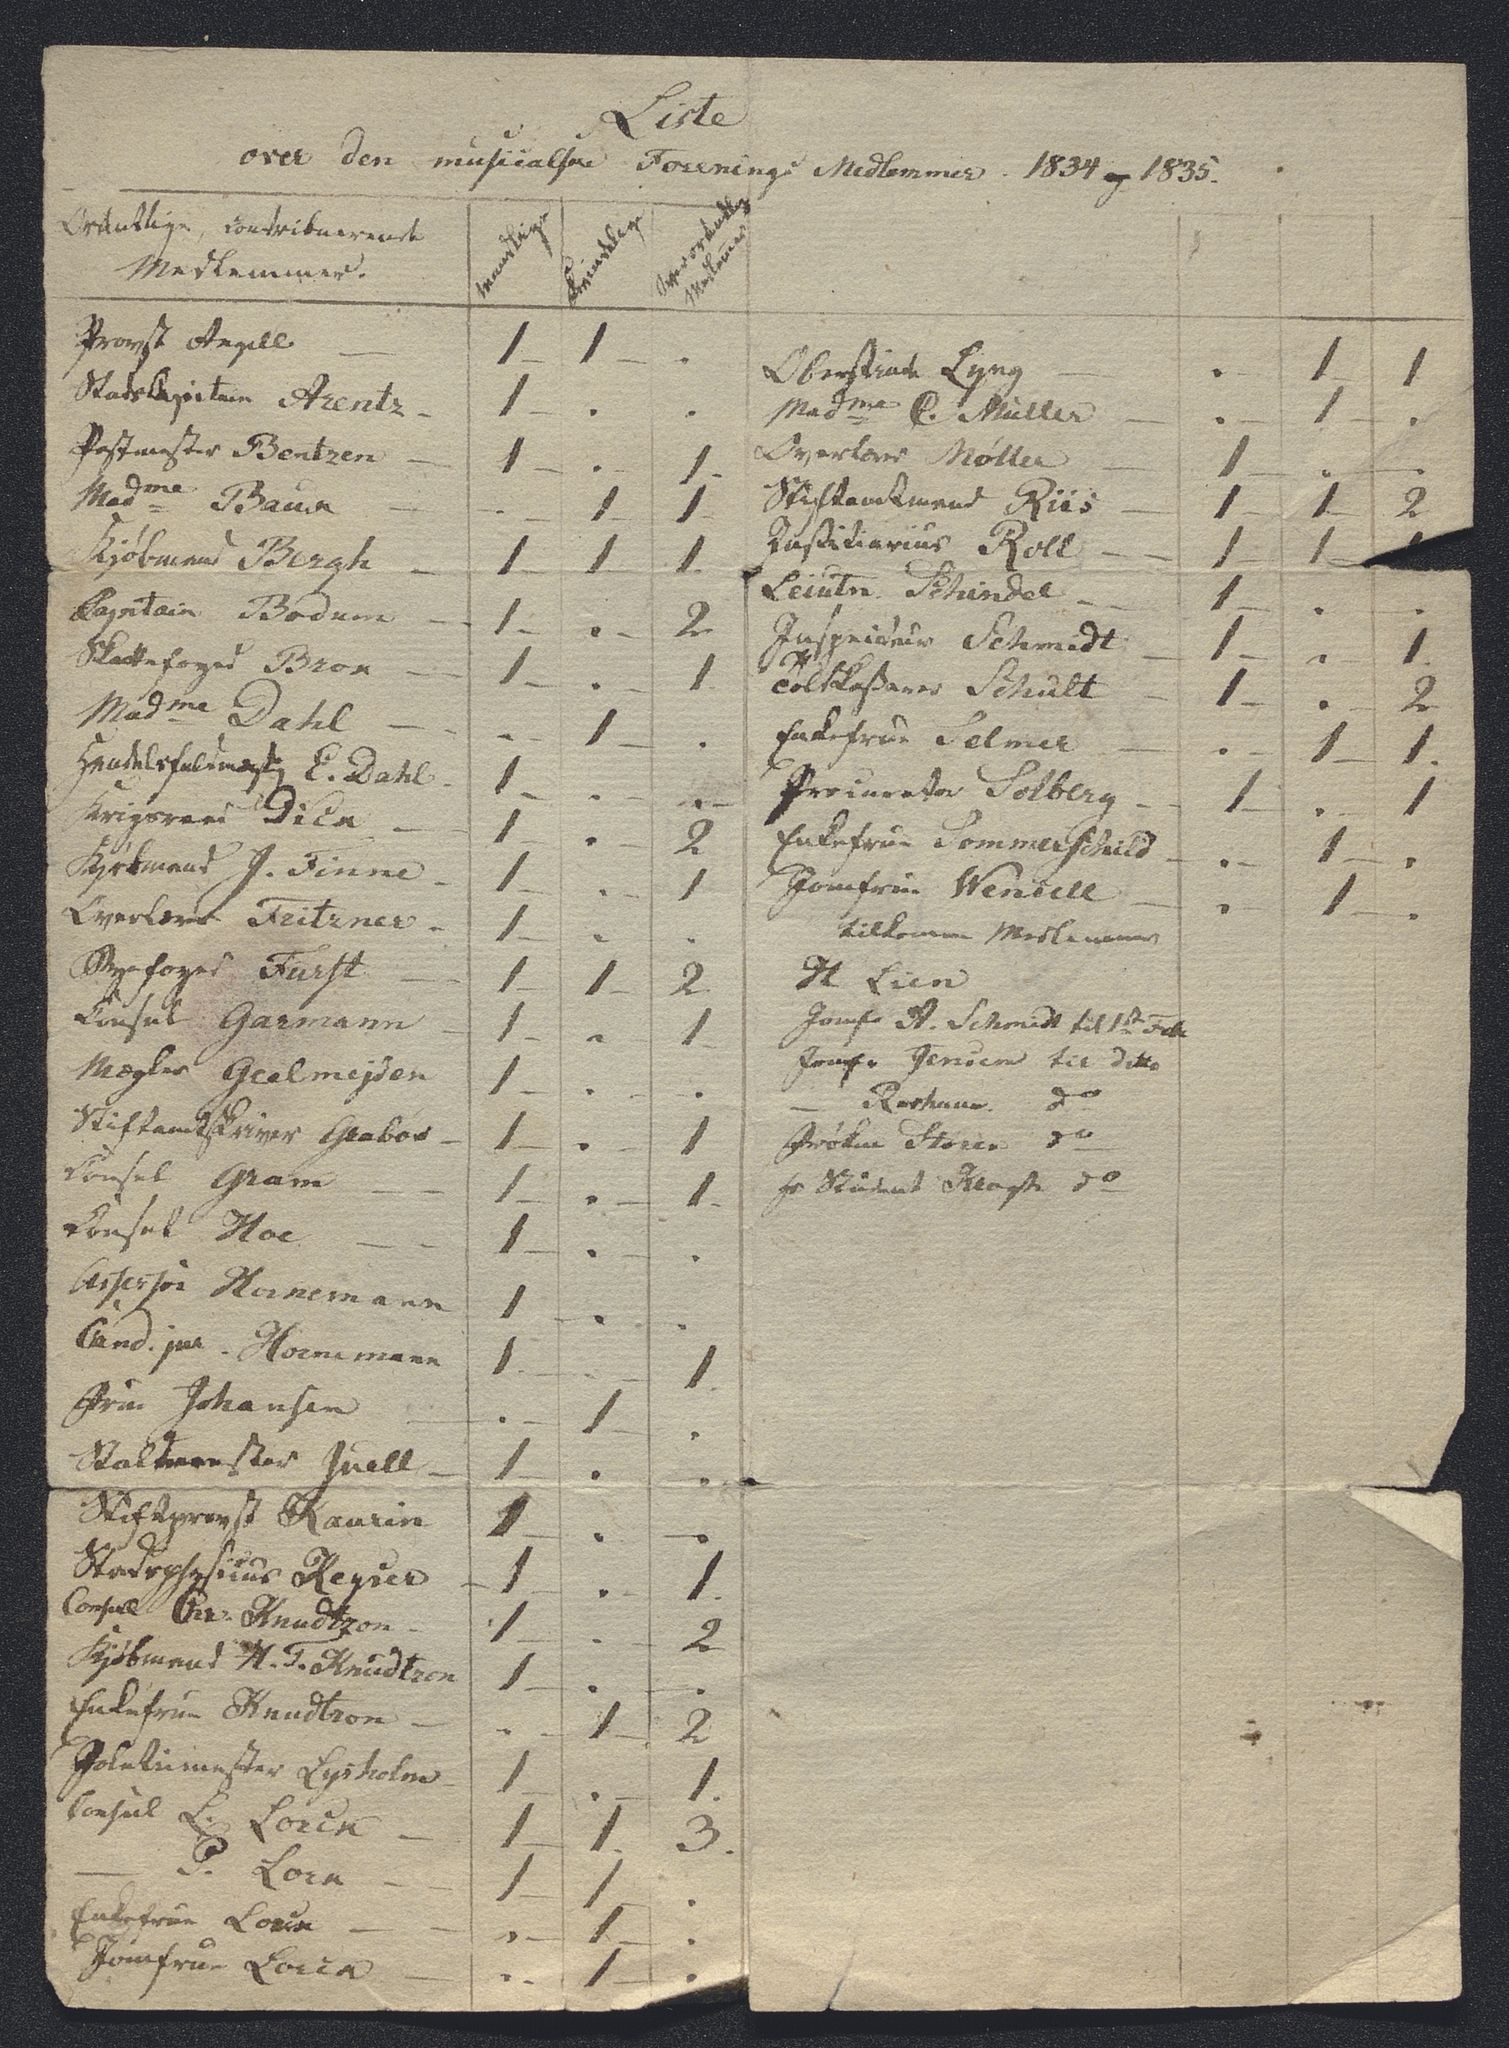 Liste
over den musicalske Forenings Medlemmer. 1834 og 1835.
Ordentlige, contribuerende
Medlemmer.
mandlige
Qvindelige
Overordentlige
Medlemmer
Provst Angell — 1 – 1 – .
Stadskapitain Arentz – 1 – . .
Postmester Bentzen — 1 – . – 1.
Madme Bauck — . – 1 1
Kjøbmand Bergh — 1 – 1 1.
Capitain Bodum — 1 – . – 2
Skattefoged Brox — 1 – . – 1.
Madme Dahl — . – 1 – .
Handelsfuldmægtig E. Dahl – 1 – . – .
Krigsraad Dick — 1 – . – 2
Kjøbmand J. Finne – 1 – . 1
Overlærer Fritzner – 1 – . .
Byefoged Fürst — 1 – 1 – 2
Consul Garmann – 1 – . 1
Mægler Geelmejden 1 – . – .
Stiftamtskriver Grabow – 1 – . 1
Consul Gram — 1 – . – 1.
Consul Hoe — 1 – . – .
Assessor Hornemann 1 – . .
Cand. jur. Hornemann 1 – . – 1.
Frue Johansen — . – 1 – .
Staldmester Juell – 1 – . .
Stiftsprovst Kaurin 1 – . – .
Stadsphysicus Keyser – 1 – . 1.
Consul Chr. Knudtzon – 1 – . – 2
Kjøbmand H. F. Knudtzon 1 – . – .
Enkefrue Knudtzon – . – 1 – 2
Politimester Lysholm – 1 – . – 1.
Consul L. Lorck — 1 – 1. 3.
— P. Lorck — 1 – 1 – .
Enkefrue Lorck — . – 1 – .
Jomfrue Lorck — . – 1 – .
Oberstinde Lyng — . – 1 – 1
Madme C. Müller — . – 1 – .
Overlærer Møller — 1 – . – .
Stiftamtmand Riis — 1 – 1 – 2
Justitiarius Roll — 1 – 1 – 1
Leiutn. Schindel — 1 – . – .
Inspecteur Schmidt — 1 – . – 1.
Toldkasserer Schult – 1 – . – 2
Enkefrue Selmer — . – 1 – 1.
Procurator Solberg — 1 – . – 1
Enkefrue Sommerschild – . – 1 – .
Jomfrue Wensell — . – 1 – .
tilkomne Medlemmer
H Lien
Jomfr A. Schmidt til 1ste Febr
Jomfr Jensen til ditto
— do
Frøken Storm do
Hr Student do